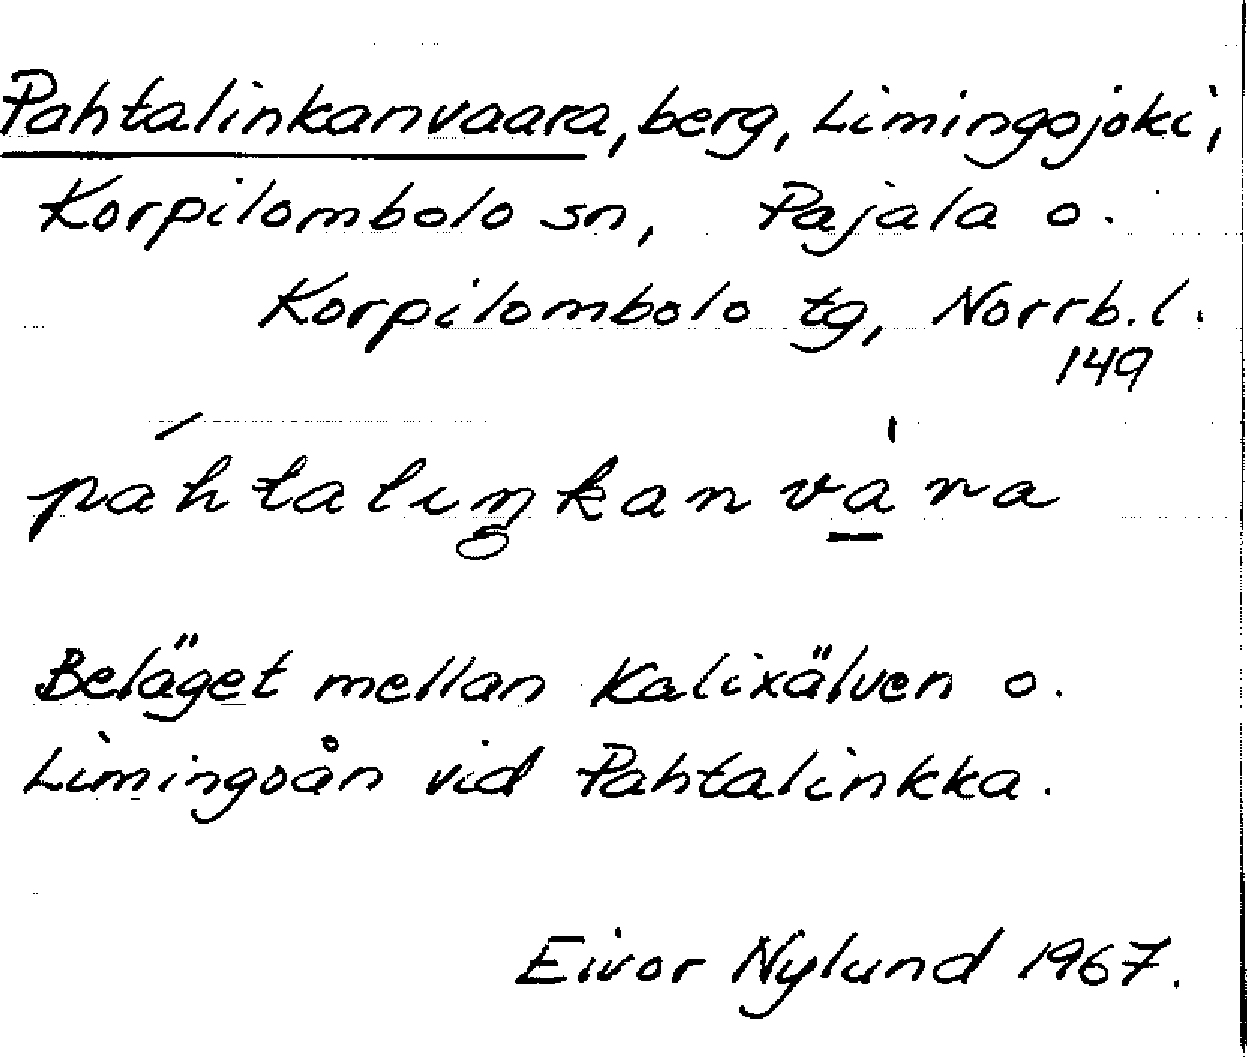 Pahtalinkanvaara, berg, Limingojoki,
Korpilombolo sn, Pajala o.
Korpilombolo tg, Norrb.l.
149
páhtaliŋkanva̱̍ra
Beläget mellan Kalixälven o.
Limingoån vid Pahtalinkka.
Eivor Nylund 1967.